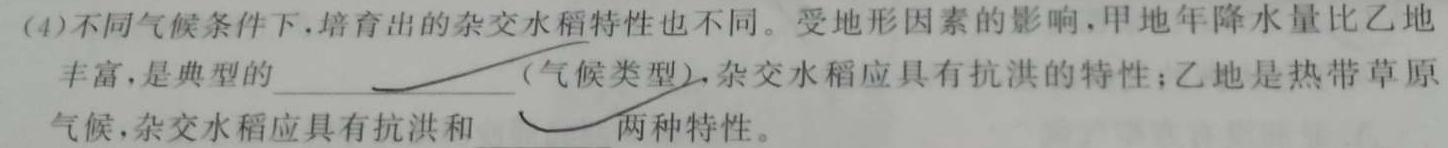 (4)不同气候条件下,培育出的杂交水稻特性也不同。受地形因素的影响,甲地年降水量比乙地
丰富,是典型的________(气候类型),杂交水稻应具有抗洪的特性;乙地是热带草原
气候,杂交水稻应具有抗洪和________两种特性。